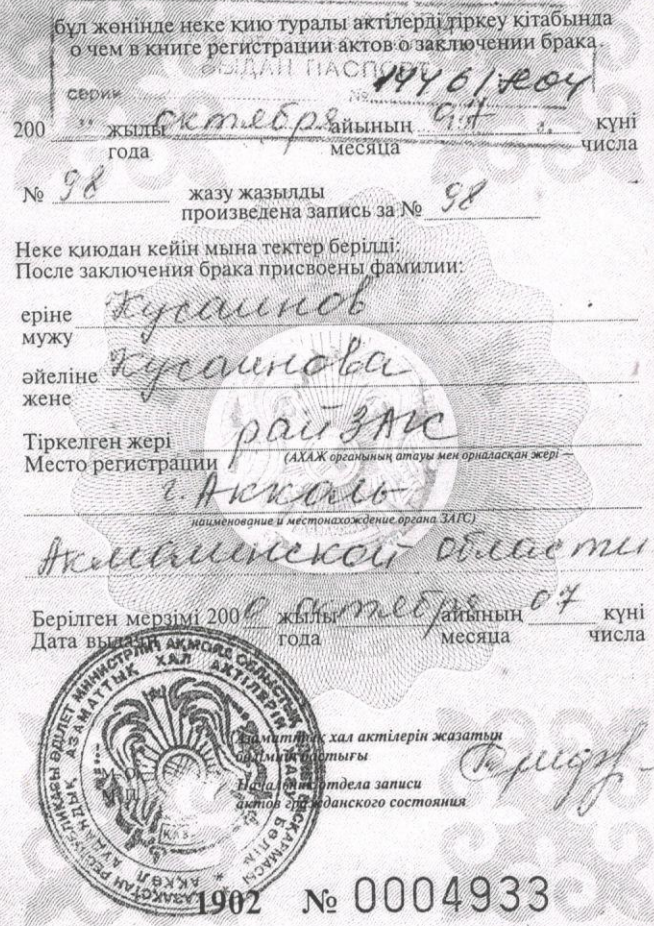 бұл жөнінде неке қию туралы актілерді тіркеу кітабында
о чем в книге регистрации актов о заключении брака
ВЫДАН ПАСПОРТ
серии №
200 жылы октября айының күні
года месяца числа
№ 98 жазу жазылды
произведена запись за № 98
Неке қиюдан кейін мына тектер берілді:
После заключения брака присвоены фамилии:
еріне Кусаинов
мужу
әйеліне Кусаинова
жене
Тіркелген жері рай ЗАГС
Место регистрации (АХАЖ органының атауы мен орналасқан жері —
г. Акколь
наименование и местонахождение органа ЗАГС)
Акмолинской области
Берілген мерзімі 2000 жылы октября айының 07 күні
Дата выдачи года месяца числа
Азаматтық хал актілерін жазатын
бөлімнің бастығы
Начальник отдела записи
актов гражданского состояния
М.О.
М.П.
1902 № 0004933